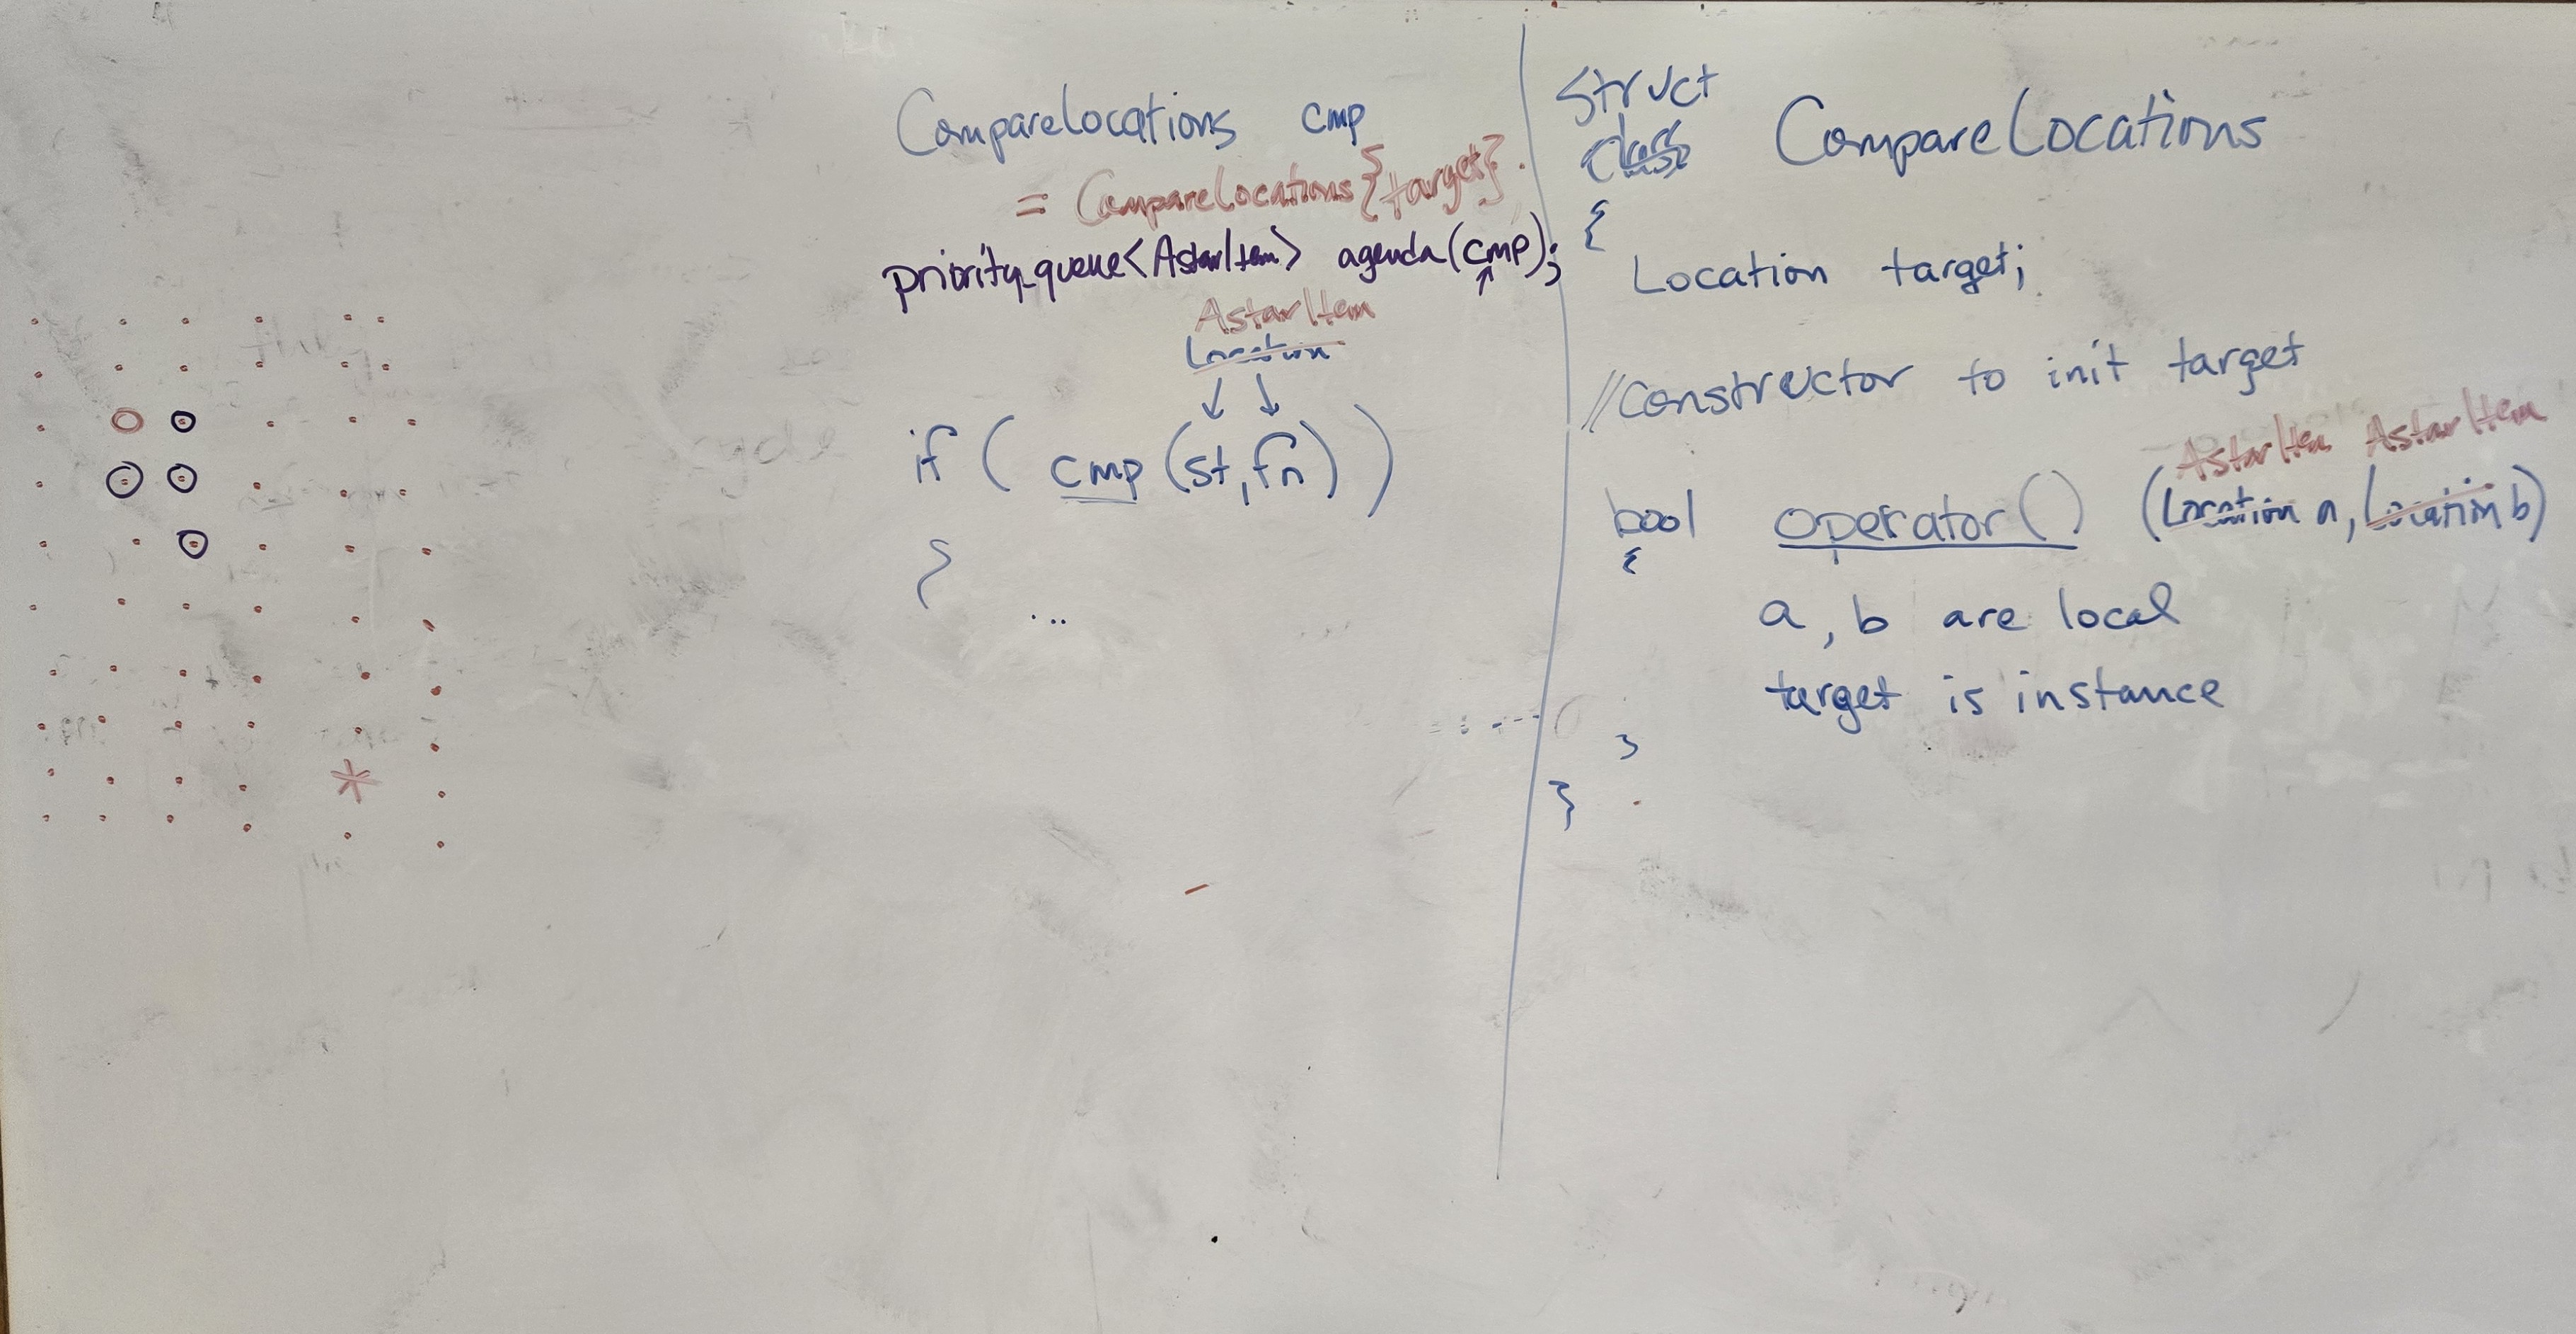 CompareLocations cmp
= CompareLocations{target}.
priority_queue<AstarItem> agenda(cmp);
AstarItem
Location
if ( cmp (st, fn) )
{
...
Struct
class CompareLocations
{
Location target;
//Constructor to init target
AstarItem AstarItem
bool operator() (Location a, Location b)
{
a, b are local
target is instance
}
}